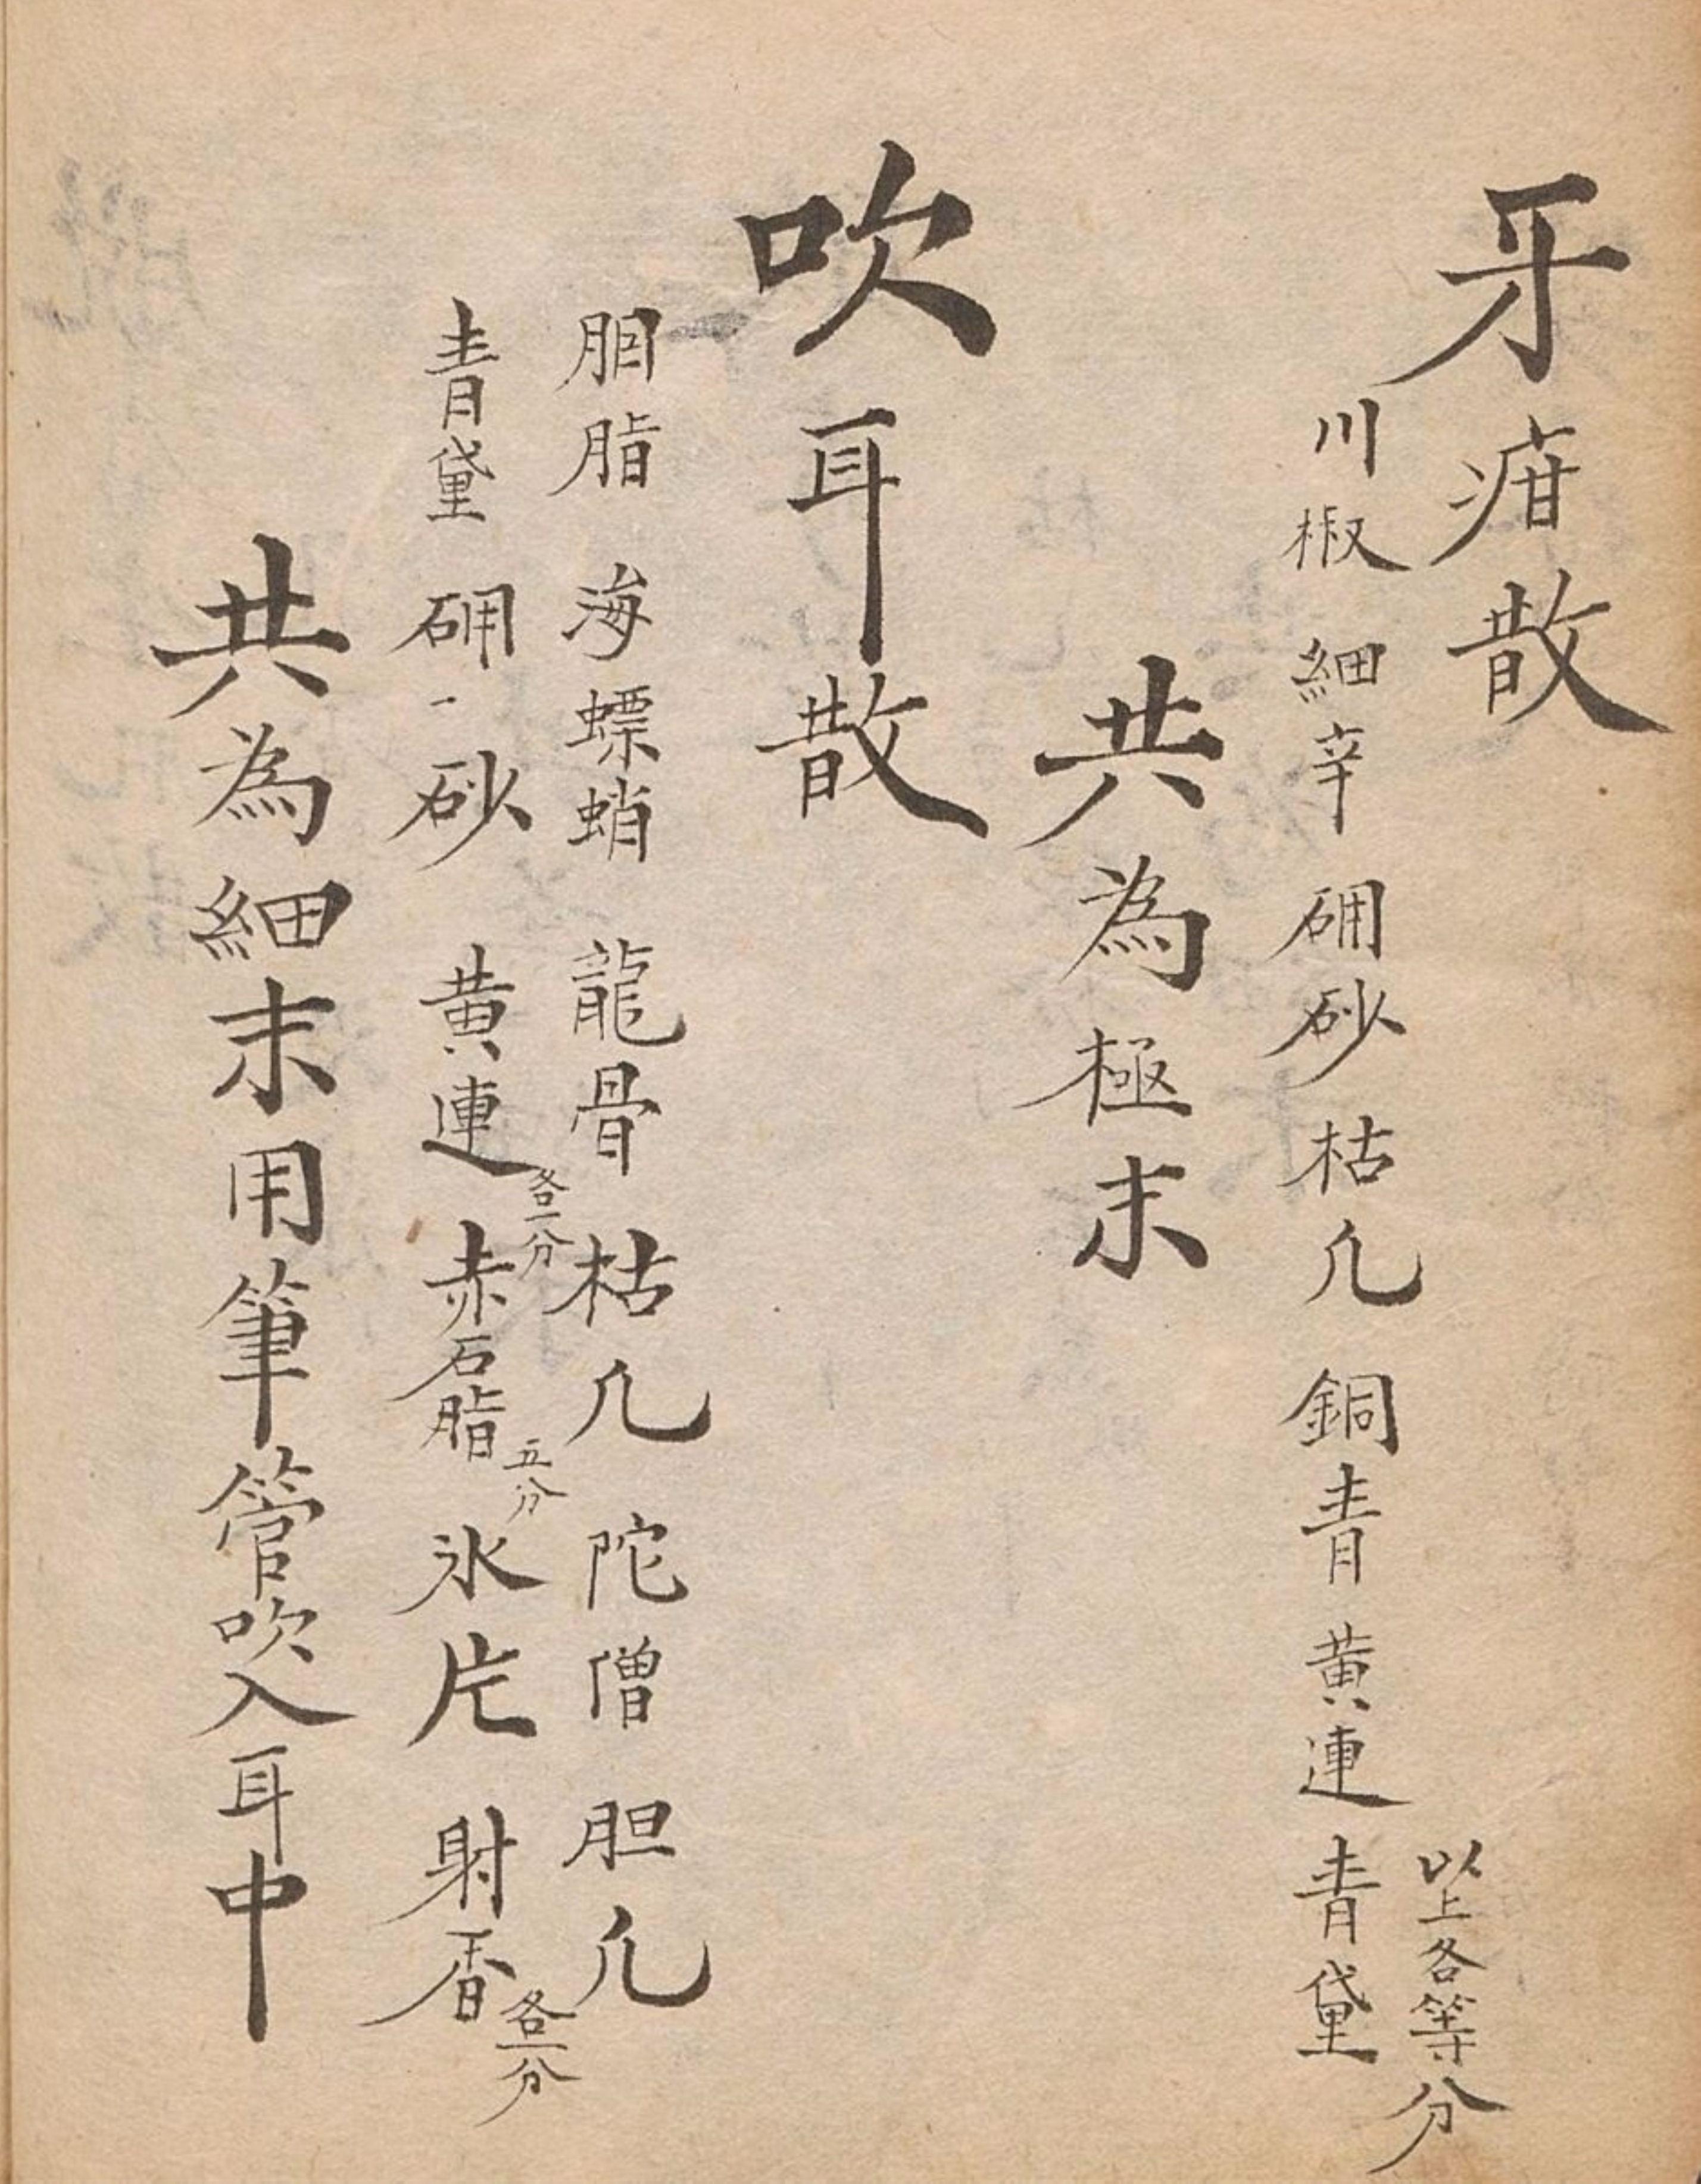 牙疳散
川椒 細辛 硼砂 枯凢 銅青 黄連 青黛 以上各等分
共為極末
吹耳散
胭脂 海螵蛸 龍骨 枯凢 陀僧 胆凢
青黛 硼砂 黄連各一分 赤石脂五分 氷片 射香各一分
共為細末用筆管吹入耳中